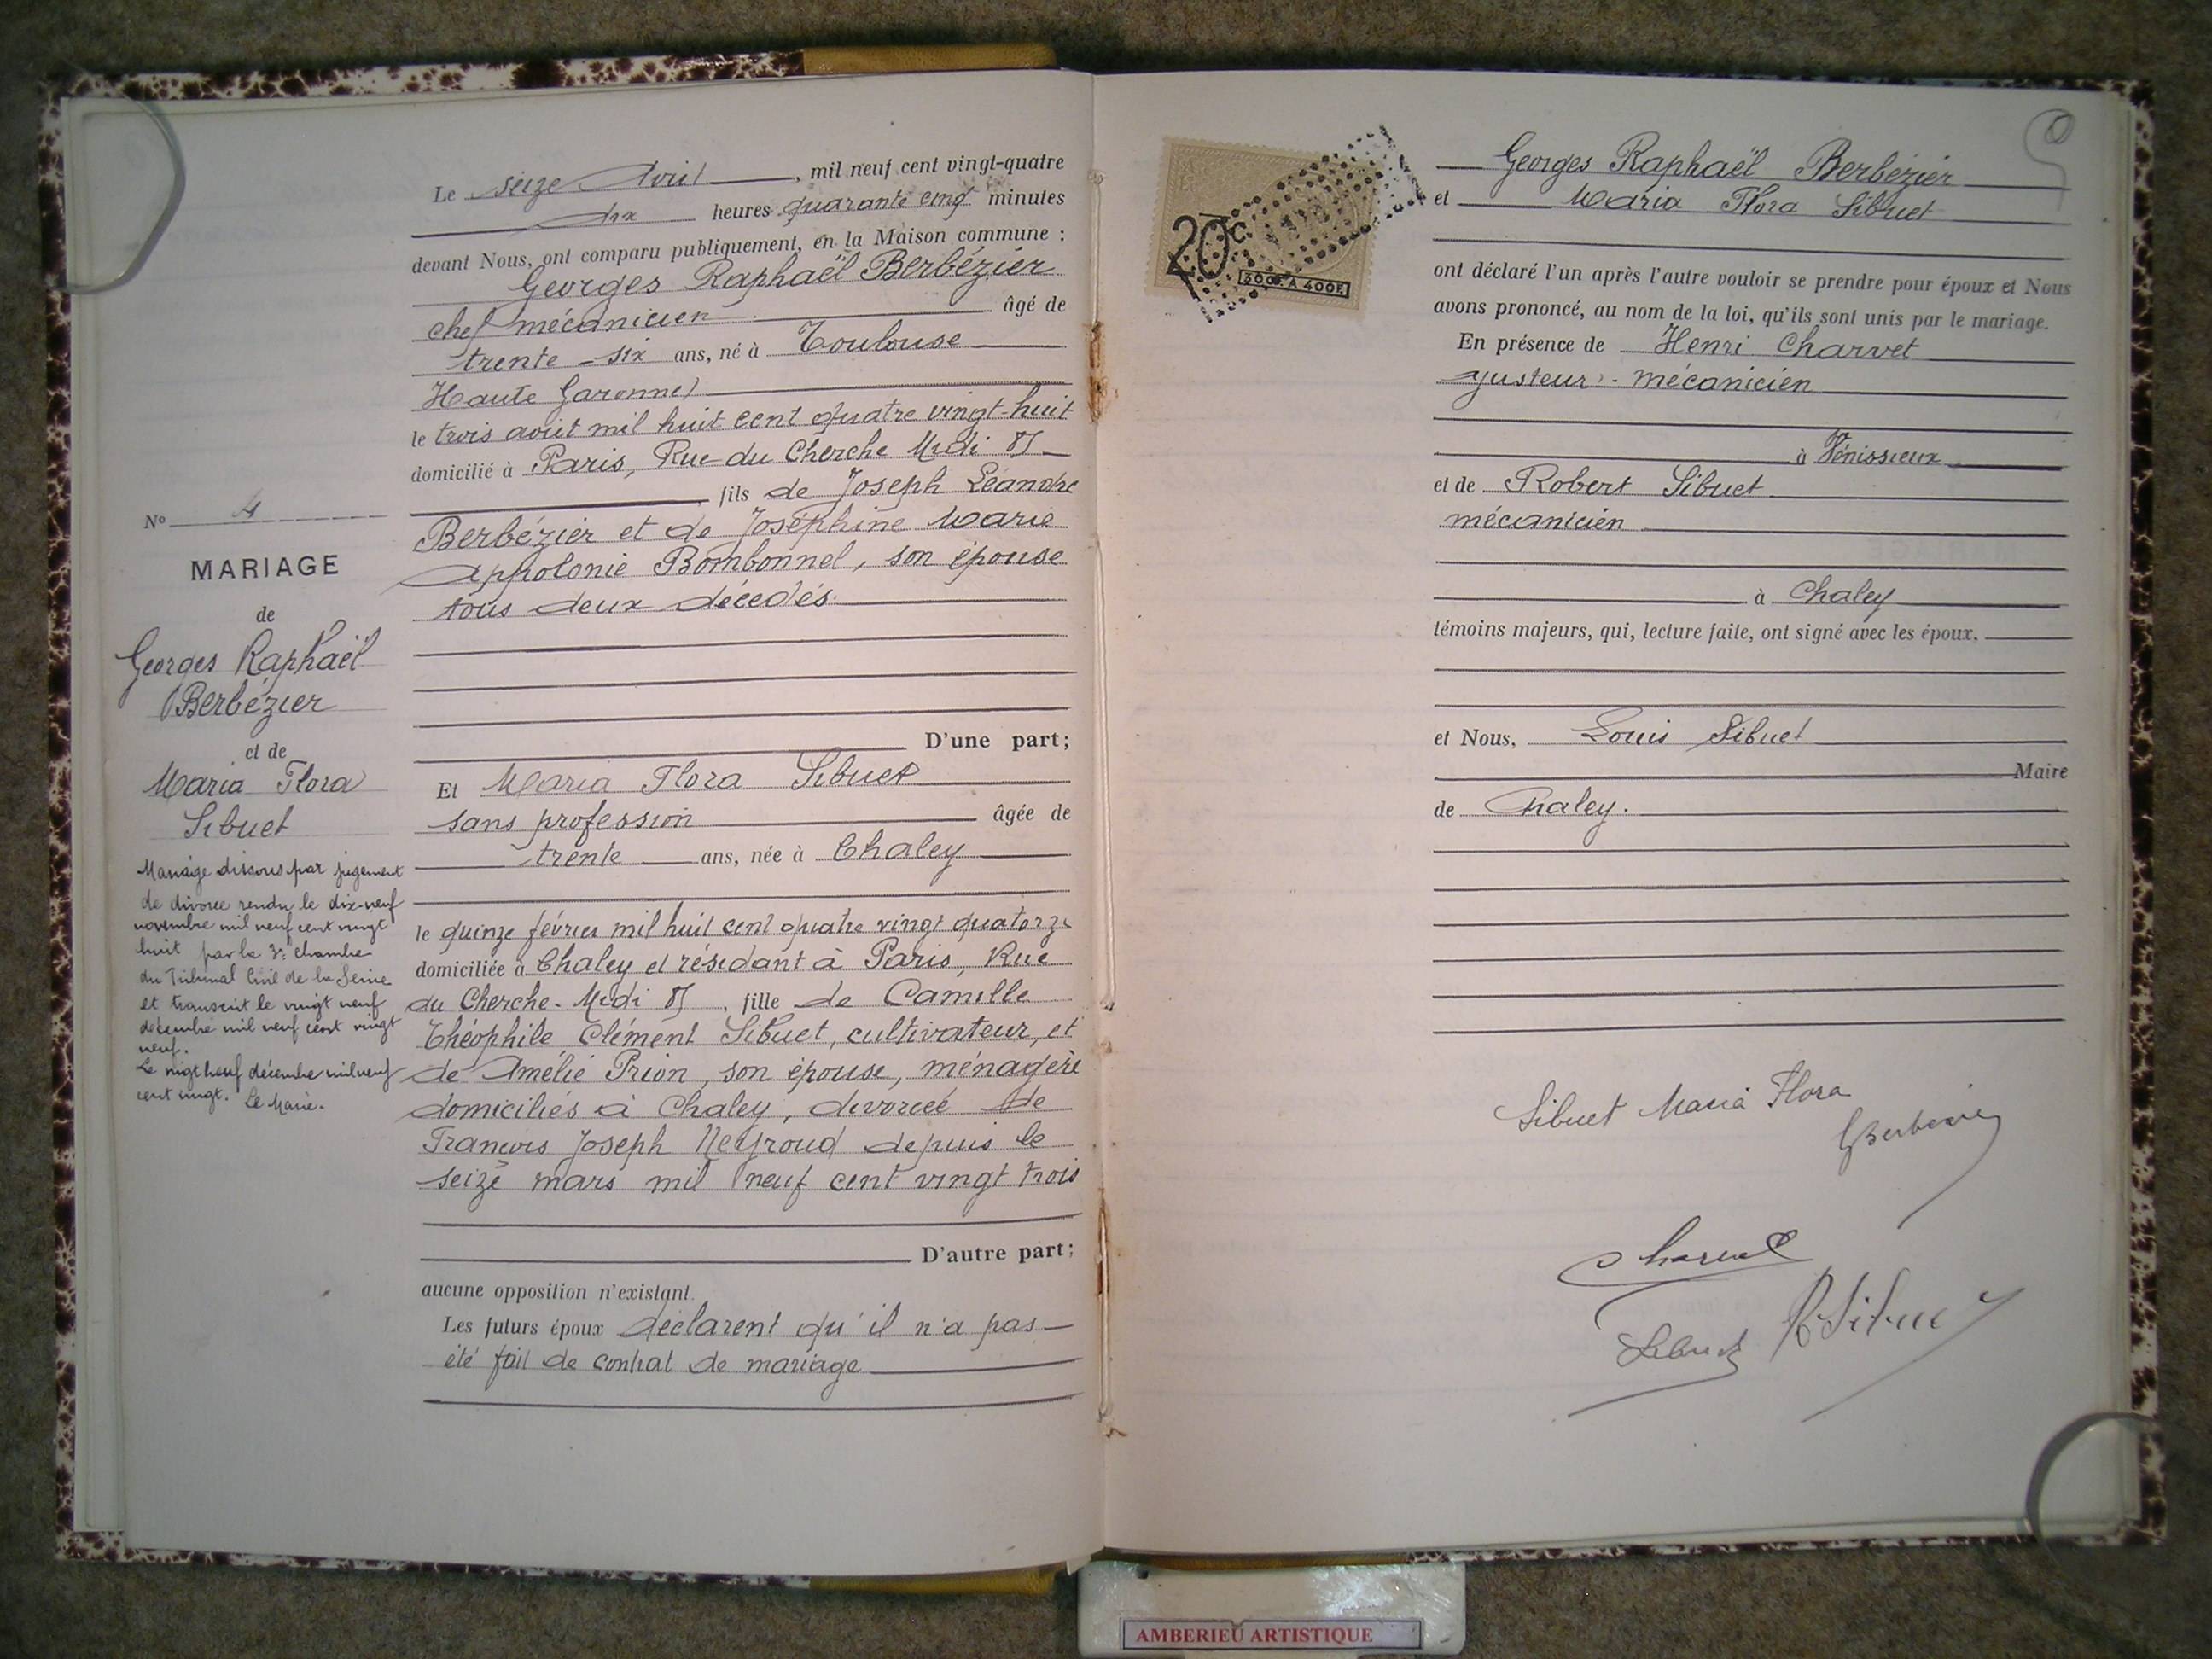 N° 4
MARIAGE
de
Georges Raphaël
Berbézier
et de
Maria Flora
Sibuet
Mariage dissous par jugement
de divorce rendu le dix-neuf
novembre mil neuf cent vingt
huit par la 3e chambre
du Tribunal Civil de la Seine
et transcrit le vingt neuf
décembre mil neuf cent vingt
neuf.
Le vingt neuf décembre mil neuf
cent vingt. Le Maire.
Le seize Avril, mil neuf cent vingt-quatre
dix heures quarante cinq minutes
devant Nous, ont comparu publiquement, en la Maison commune :
Georges Raphaël Berbézier
chef mécanicien âgé de
trente-six ans, né à Toulouse
Haute Garonne)
le trois août mil huit cent quatre vingt-huit
domicilié à Paris, Rue du Cherche Midi 85
fils de Joseph Léandre
Berbézier et de Joséphine Marie
Appolonie Bombonnel, son épouse
tous deux décédés.
D'une part;
Et Maria Flora Sibuet
sans profession âgée de
trente ans, née à Chaley
le quinze février mil huit cent quatre vingt quatorze
domiciliée à Chaley et résidant à Paris, Rue
du Cherche-Midi 85, fille de Camille
Théophile Clément Sibuet, cultivateur, et
de Amélie Prion, son épouse, ménagère
domiciliés à Chaley, divorcée de
François Joseph Neyroud depuis le
seize mars mil neuf cent vingt trois
D'autre part;
aucune opposition n'existant.
Les futurs époux déclarent qu'il n'a pas
été fait de contrat de mariage
20c.
300F. A 400F.
Georges Raphaël Berbézier
et Maria Flora Sibuet
ont déclaré l'un après l'autre vouloir se prendre pour époux et Nous
avons prononcé, au nom de la loi, qu'ils sont unis par le mariage.
En présence de Henri Charvet
ajusteur-mécanicien
à Vénissieux
et de Robert Sibuet
mécanicien
à Chaley
témoins majeurs, qui, lecture faite, ont signé avec les époux.
et Nous, Louis Sibuet
Maire
de Chaley.
Sibuet Maria Flora
GBerbezier
Charvet
Sibuet RSibuet
AMBERIEU ARTISTIQUE